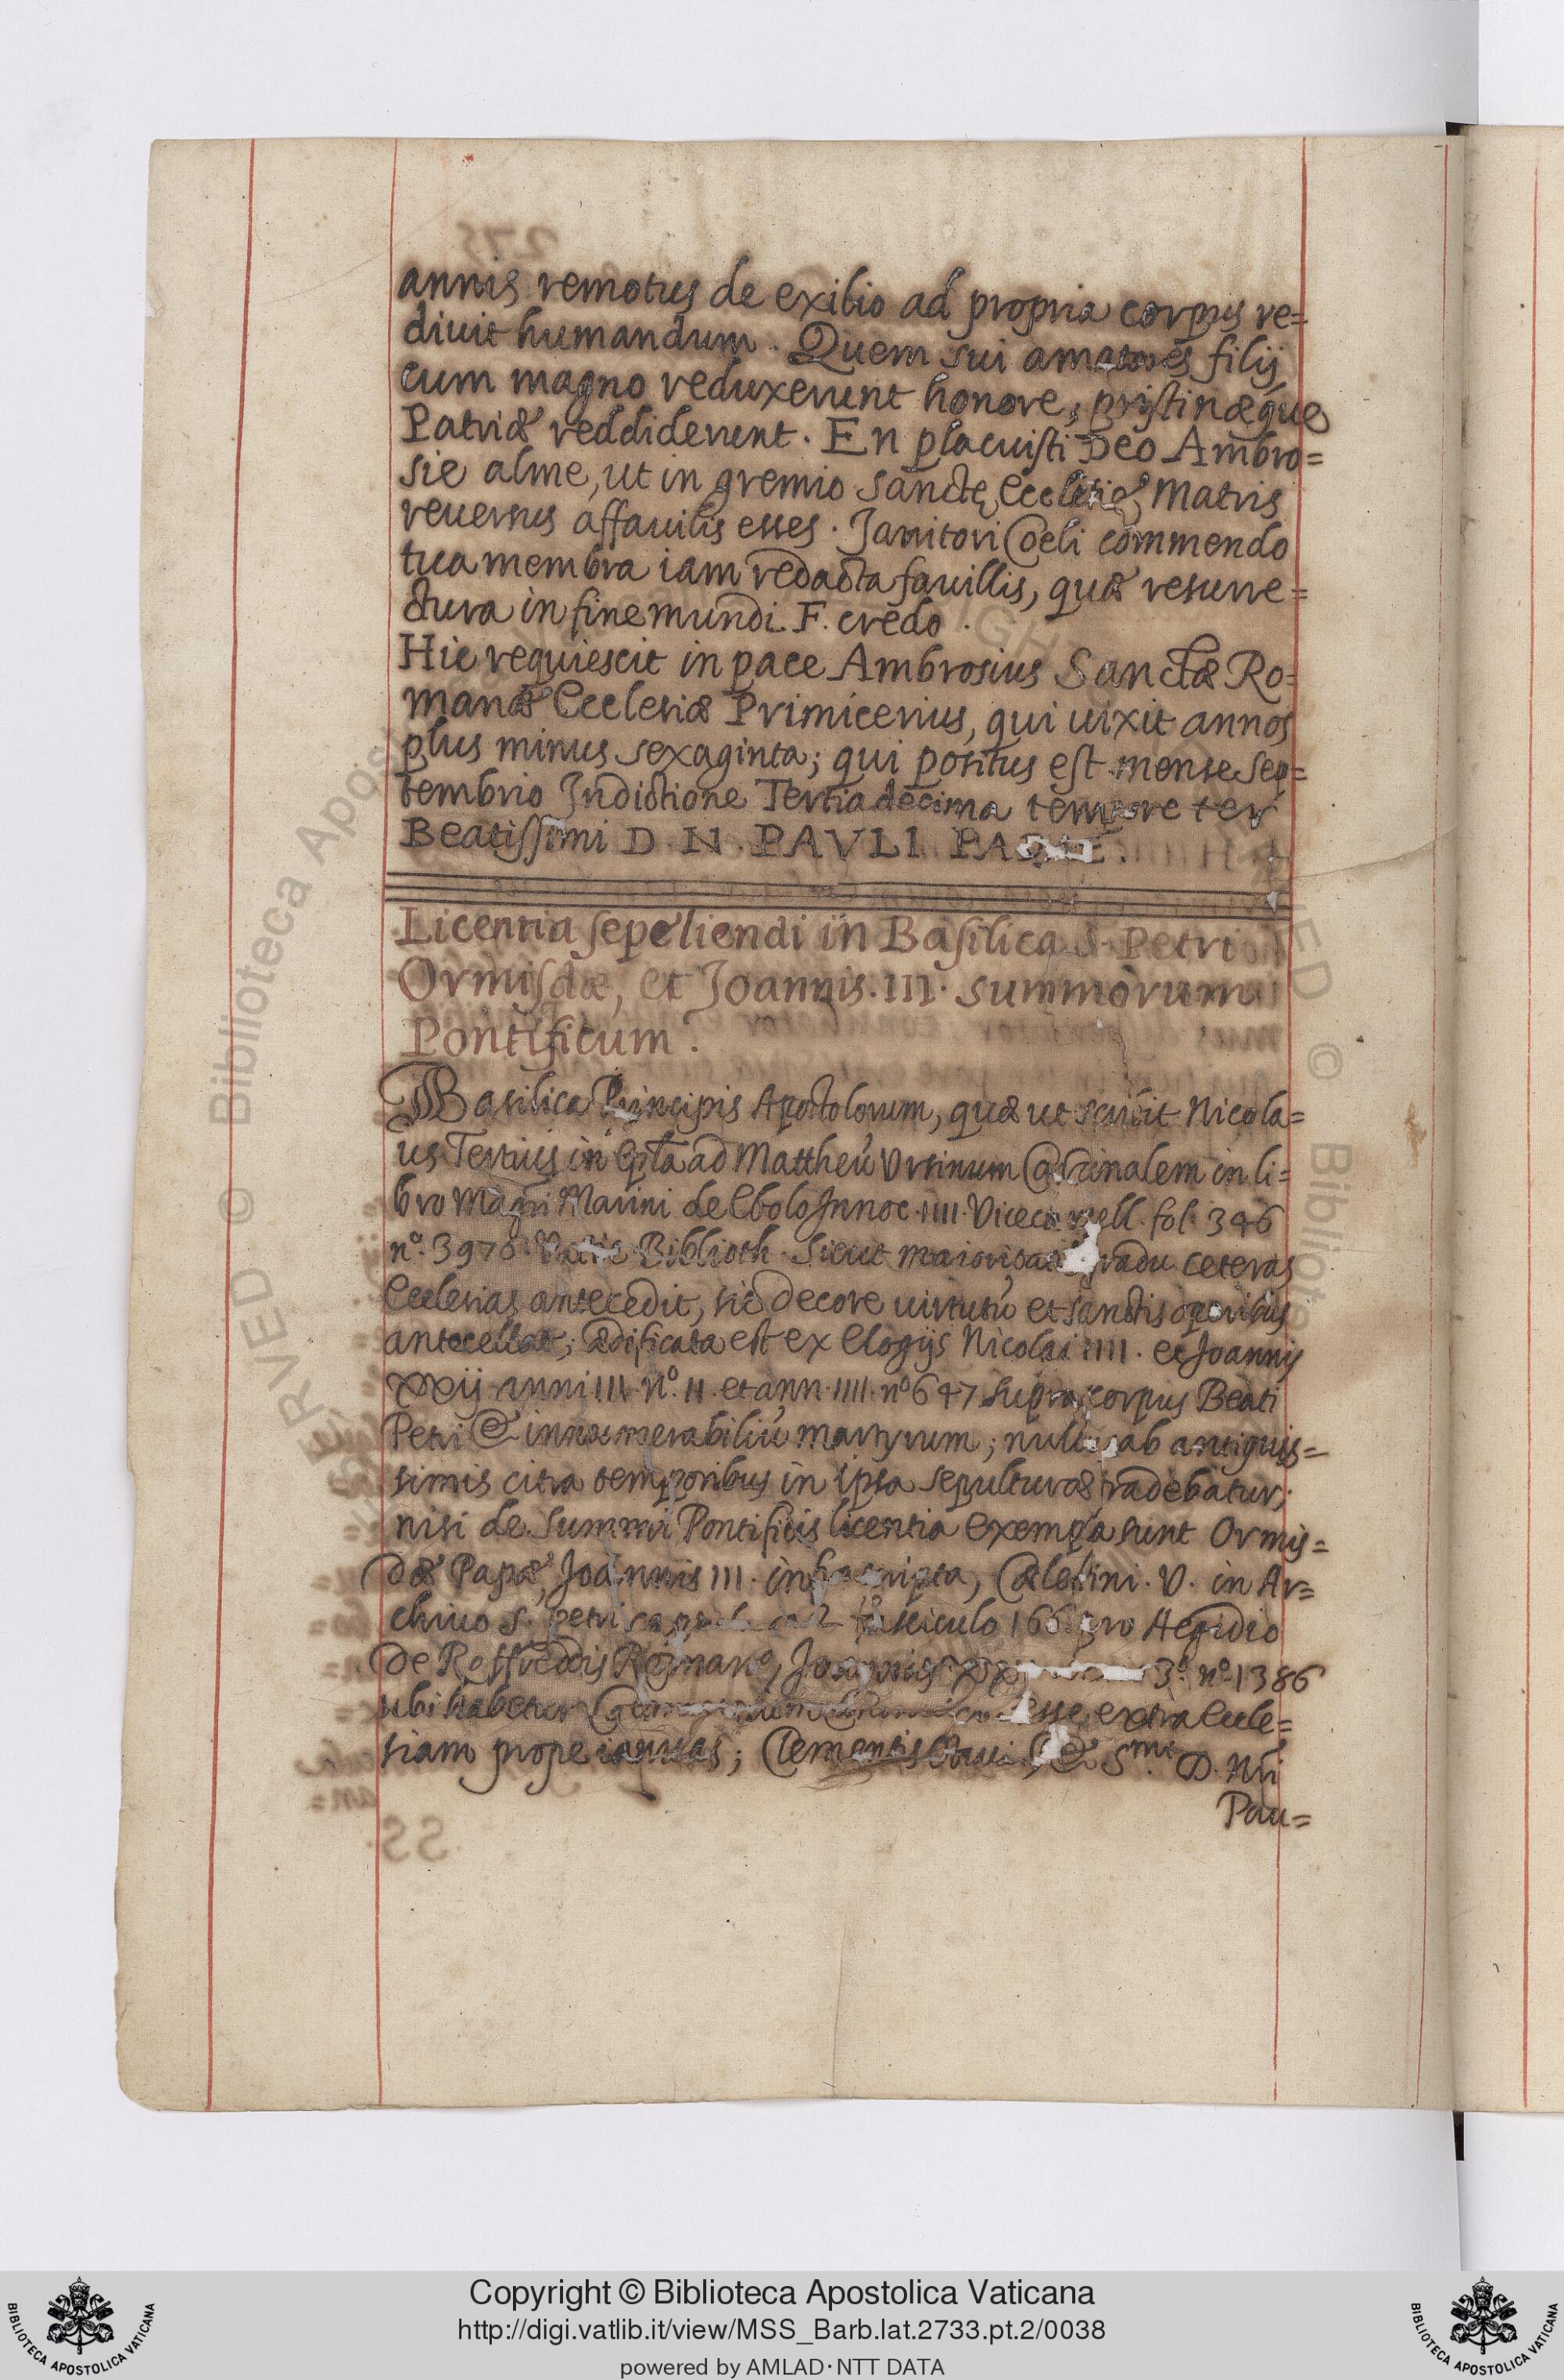 annis remotus de exilio ad propria corpus re=
diuit humandum. Quem sui amatores filij
cum magno reduxerunt honore, pristinæque
Patriæ reddiderunt. En placuisti Deo Ambro=
sie alme, ut in gremio Sanctę Ecclesiæ Matris
reuersus affauilis esses. Janitori Coeli commendo
tua membra iam redacta fauillis, quæ resurre=
ctura in fine mundi F. credo.
Hic requiescit in pace Ambrosius Sanctæ Ro=
manæ Ecclesiæ Primicerius, qui uixit annos
plus minus sexaginta; qui positus est mense Sep=
tembrio Jndictione Tertiadecima tempore ter
Beatissimi D. N. PAVLI PAPAE.
Licentia sepeliendi in Basilica S. Petri
Ormisdæ, et Joannis. III. summorum
Pontificum.
Basilica Principis Apostolorum, quæ ut scribit Nicola=
us Tertius in Epľa ad Mattheū Vrsinum Cardinalem in li=
bro Magri Marini de Ebolo Innoc. IIII. Vicecancell. fol. 346
nº. 3976. Vatic. Biblioth. Sicut maioris gradu ceteras
Ecclesias antecedit, sic decore uirtutū et sanctis operibus
antecellat; ædificata est ex elogijs Nicolai IIII. et Joannis
xxij anni III. nº. II. et ann. IIII. nº 647 supra corpus Beati
Petri & innumerabiliū martyrum; nulli ab antiquis=
simis citra temporibus in ipsa sepulturæ tradebatur;
nisi de Summi Pontificis licentia exempla sunt Ormis=
dæ Papæ, Joannis III. infrascripta, Cælestini. V. in Ar=
chiuo S. Petri fasciculo 166. pro Aegidio
de Roffredis Romano, Joannis 3º. nº. 1386
ubi habetur esse extra Eccle=
siam prope ianuas; Clementis & S.mi D. Nri
Pau=
Copyright © Biblioteca Apostolica Vaticana
http://digi.vatlib.it/view/MSS_Barb.lat.2733.pt.2/0038
powered by AMLAD·NTT DATA
BIBLIOTECA APOSTOLICA VATICANA
BIBLIOTECA APOSTOLICA VATICANA